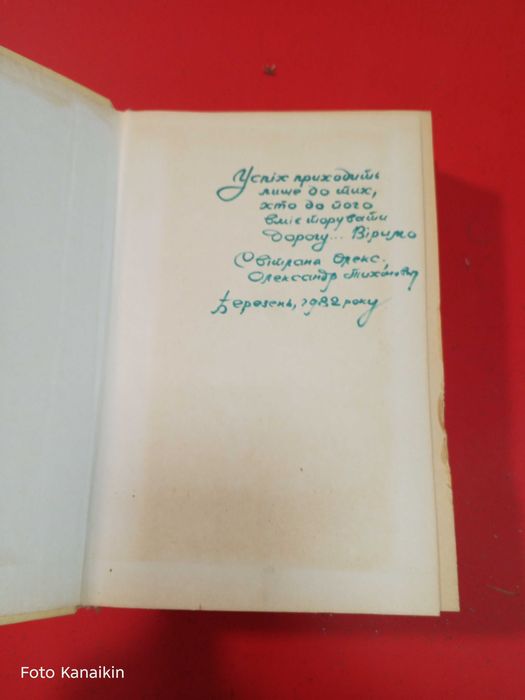 Успіх приходить
лише до тих,
хто до його
вміє торувати
дорогу... Віримо
Світлана Олекс.,
Олександр Тихонович
Березень, 1982 року
Foto Kanaikin